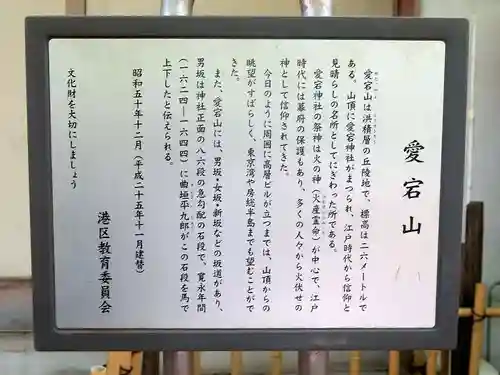 愛宕山
愛宕山は洪積層の丘陵地で、標高は二六メートルで
ある。山頂に愛宕神社がまつられ、江戸時代から信仰と
見晴らしの名所としてにぎわった所である。
愛宕神社の祭神は火の神（火産霊命）が中心で、江戸
時代には幕府の保護もあり、多くの人々から火伏せの
神として信仰されてきた。
今日のように周囲に高層ビルが立つまでは、山頂からの
眺望がすばらしく、東京湾や房総半島までも望むことがで
きた。
また、愛宕山には、男坂・女坂・新坂などの坂道があり、
男坂は神社正面の八六段の急勾配の石段で、寛永年間
（一六二四―一六四四）に曲垣平九郎がこの石段を馬で
上下したと伝えられる。
昭和五十年十二月（平成二十五年十一月建替）
港区教育委員会
文化財を大切にしましょう